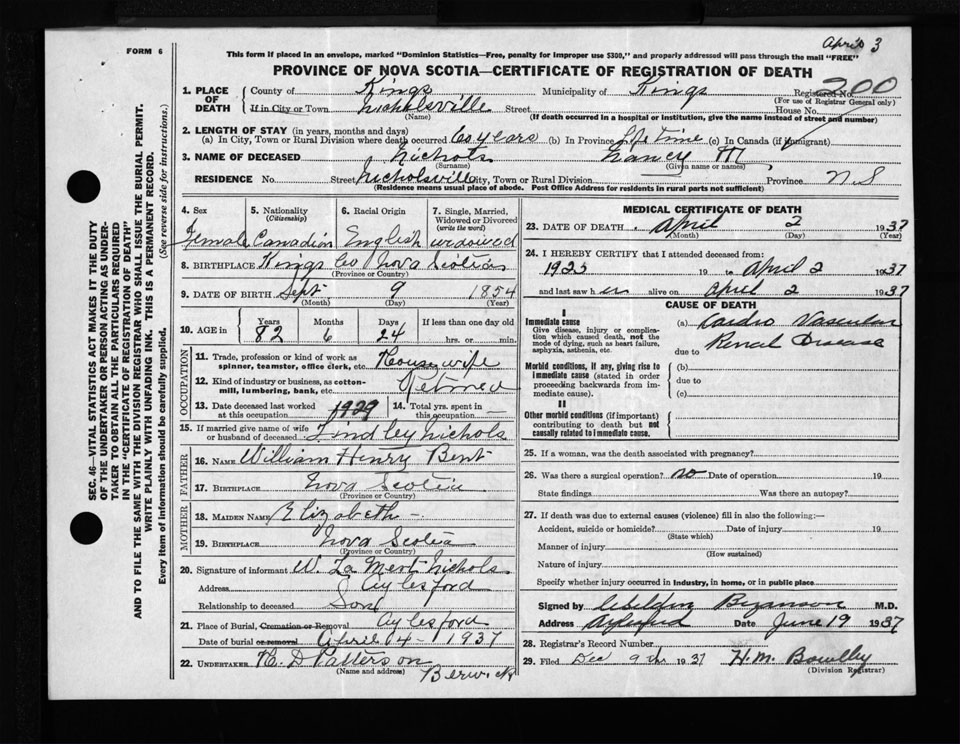 April 3
FORM 6
This form if placed in an envelope, marked "Dominion Statistics—Free, penalty for improper use $300," and properly addressed will pass through the mail "FREE"
PROVINCE OF NOVA SCOTIA—CERTIFICATE OF REGISTRATION OF DEATH
SEC. 46—VITAL STATISTICS ACT MAKES IT THE DUTY
OF THE UNDERTAKER OR PERSON ACTING AS UNDER-
TAKER TO OBTAIN ALL THE PARTICULARS REQUIRED
IN THE "CERTIFICATE OF REGISTRATION OF DEATH"
AND TO FILE THE SAME WITH THE DIVISION REGISTRAR WHO SHALL ISSUE THE BURIAL PERMIT.
WRITE PLAINLY WITH UNFADING INK. THIS IS A PERMANENT RECORD.
Every item of information should be carefully supplied. (See reverse side for instructions.)
1. PLACE OF DEATH County of Kings Municipality of Kings Registered No. 200
(For use of Registrar General only)
If in City or Town Nicholsville Street House No.
(Name) (If death occurred in a hospital or institution, give the name instead of street and number)
2. LENGTH OF STAY (in years, months and days)
(a) In City, Town or Rural Division where death occurred 60 years (b) In Province Life time (c) In Canada (if immigrant)
3. NAME OF DECEASED Nichols Nancy M
(Surname) (Given name or names)
RESIDENCE No. Street Nicholsville City, Town or Rural Division Province N S
(Residence means usual place of abode. Post Office Address for residents in rural parts not sufficient)
4. Sex 5. Nationality (Citizenship) 6. Racial Origin 7. Single, Married, Widowed or Divorced (write the word)
Female Canadian English widowed
8. BIRTHPLACE Kings Co Nova Scotia
(Province or Country)
9. DATE OF BIRTH Sept 9 1854
(Month) (Day) (Year)
10. AGE in Years 82 Months 6 Days 24 If less than one day old hrs. or min.
OCCUPATION
11. Trade, profession or kind of work as spinner, teamster, office clerk, etc. Housewife
12. Kind of industry or business, as cotton-mill, lumbering, bank, etc. Retired
13. Date deceased last worked at this occupation 1929 14. Total yrs. spent in this occupation —
15. If married give name of wife or husband of deceased Lindley Nichols
FATHER
16. NAME William Henry Bent
17. BIRTHPLACE Nova Scotia
(Province or Country)
MOTHER
18. MAIDEN NAME Elizabeth —
19. BIRTHPLACE Nova Scotia
(Province or Country)
20. Signature of informant W. La Mert Nichols
Address Aylesford
Relationship to deceased Son
21. Place of Burial, Cremation or Removal Aylesford
Date of burial or removal April 4 - 1937
22. UNDERTAKER Patterson
(Name and address) Berwick
MEDICAL CERTIFICATE OF DEATH
23. DATE OF DEATH April 2 1937
(Month) (Day) (Year)
24. I HEREBY CERTIFY that I attended deceased from:
1925 19 to April 2 1937
and last saw her alive on April 2 1937
CAUSE OF DEATH
I
Immediate cause (a) Cardio Vascular
Give disease, injury or complication which caused death, not the mode of dying, such as heart failure, asphyxia, asthenia, etc. due to Renal Disease
Morbid conditions, if any, giving rise to immediate cause (stated in order proceeding backwards from immediate cause). (b) due to (c)
II
Other morbid conditions (if important) contributing to death but not causally related to immediate cause.
25. If a woman, was the death associated with pregnancy?
26. Was there a surgical operation? no Date of operation 19
State findings Was there an autopsy?
27. If death was due to external causes (violence) fill in also the following:—
Accident, suicide or homicide? Date of injury 19
(State which)
Manner of injury
(How sustained)
Nature of injury
Specify whether injury occurred in industry, in home, or in public place
Signed by Bezanson M.D.
Address Aylesford Date June 19 1937
28. Registrar's Record Number
29. Filed Dec 9th 1937 H.M. Bowlby
(Division Registrar)